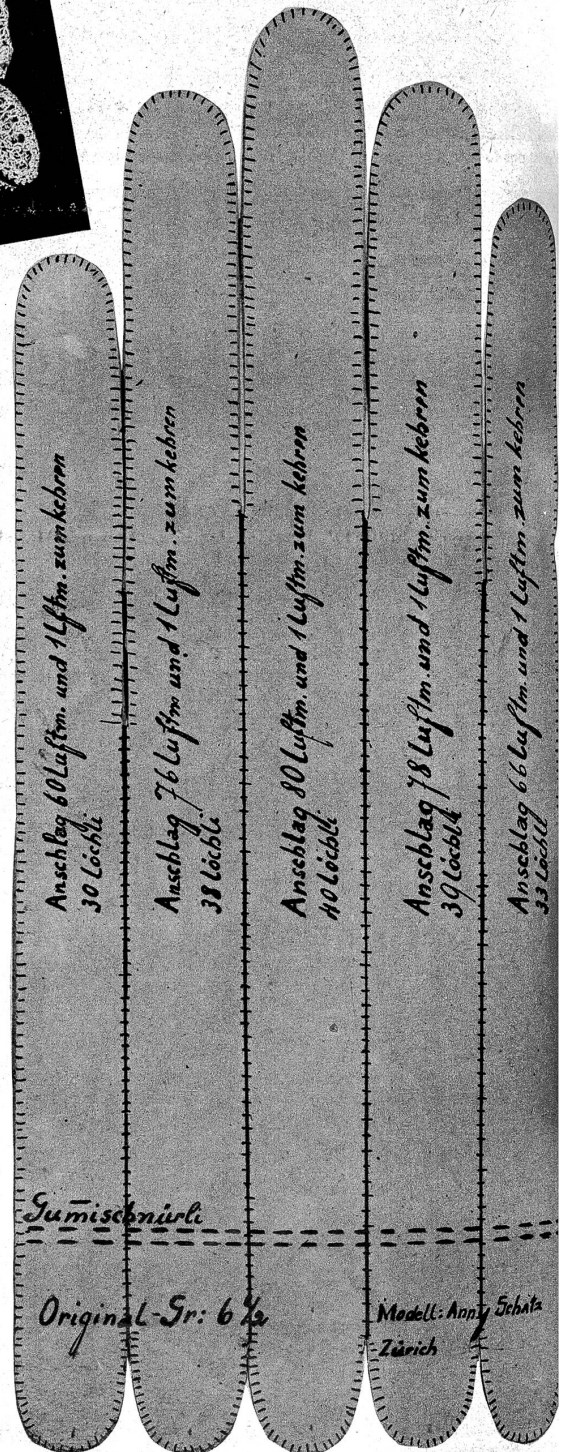 Anschlag 60 Luftm. und 1 Lftm. zum kehren
30 Löchli
Anschlag 76 Luftm und 1 Luftm. zum kehren
38 Löchli
Anschlag 80 Luftm. und 1 Luftm. zum kehren
40 Löchli
Anschlag 78 Luftm. und 1 Luftm. zum kehren
39 Löchli
Anschlag 66 Luftm. und 1 Luftm. zum kehren
33 Löchli
Gum̄ischnürli
Original-Gr: 6 1/2
Modell: Anny Schätz
Zürich